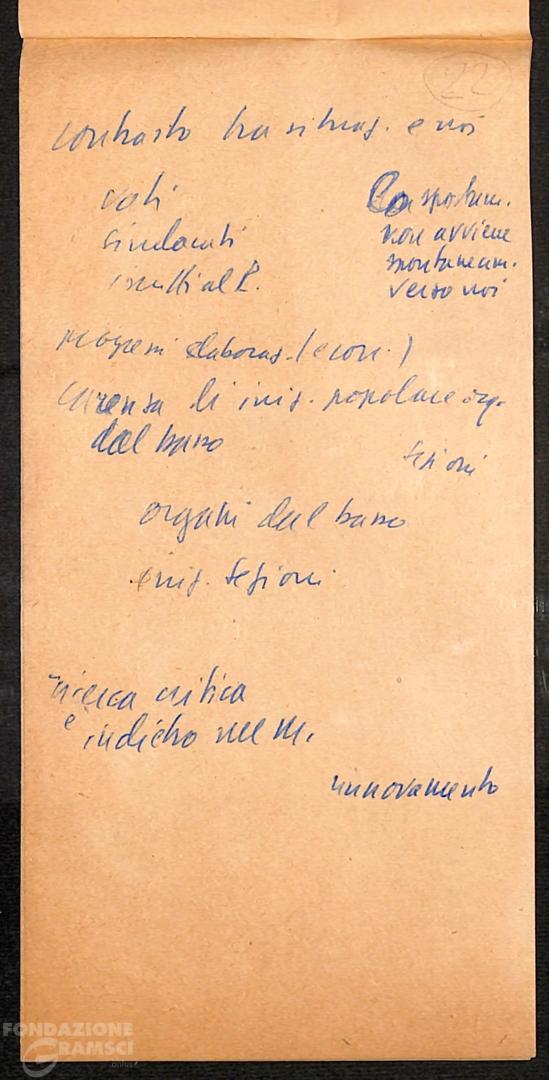 22
contrasto tra situaz. e noi
voti
sindacati
iscritti al P.
Lo spostam.
non avviene
spontaneam.
verso noi
progressi elaboraz. (econ.)
carenza di iniz. popolare org.
dal basso
sezioni
organi dal basso
iniz. sezioni
ricerca critica
e indietro nel M.
rinnovamento
FONDAZIONE
GRAMSCI
onlus